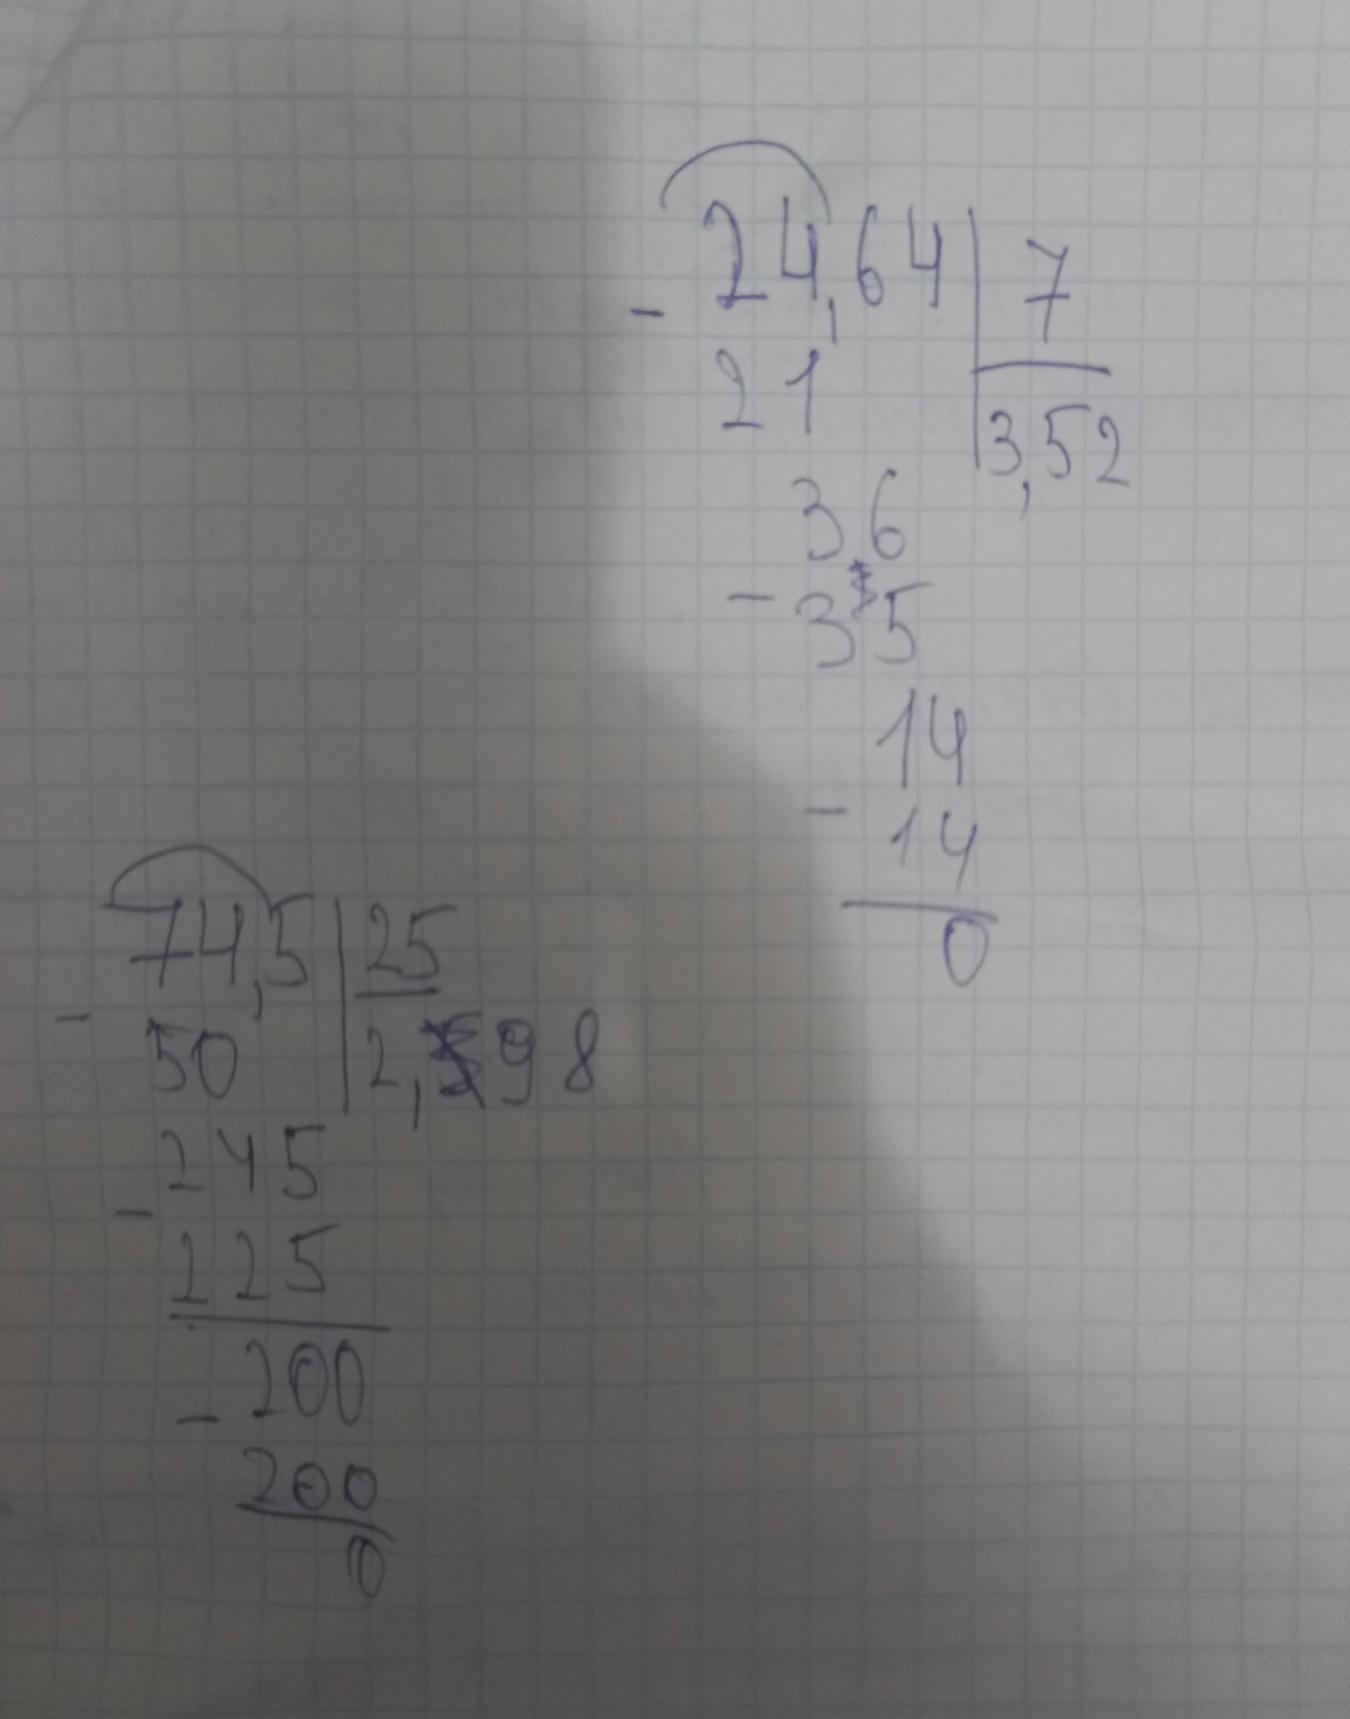 24,64 | 7
- 21 | 3,52
36
- 35
14
- 14
0
74,5 | 25
- 50 | 2,98
245
- 225
200
- 200
0